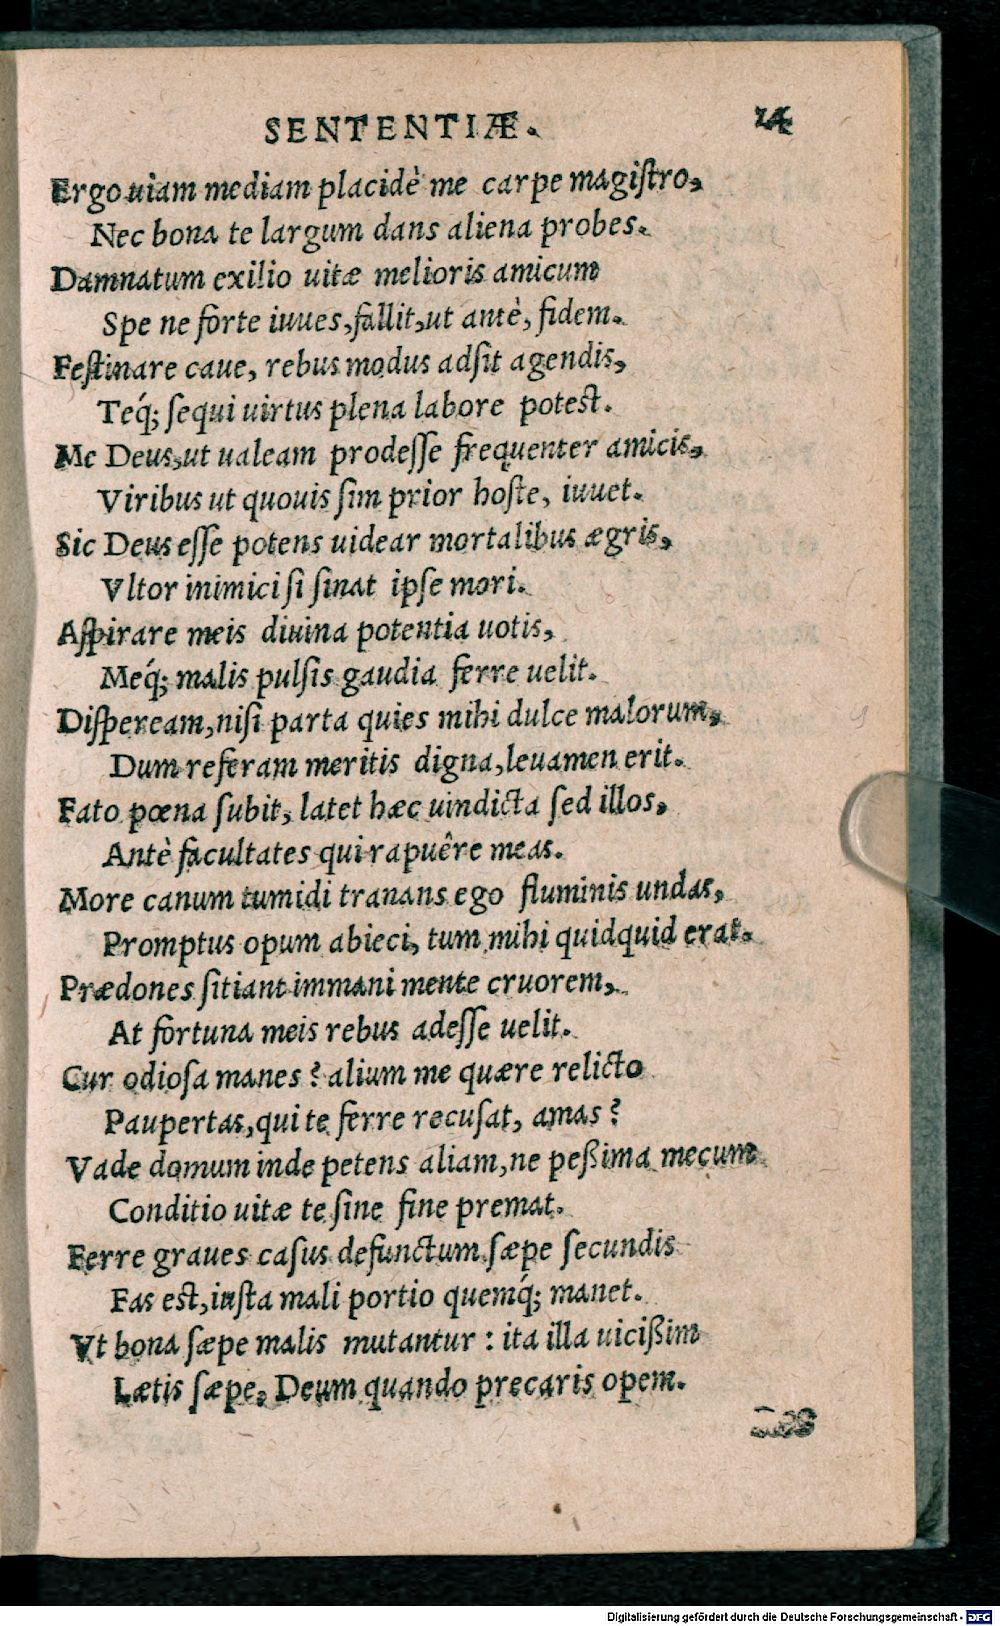 SENTENTIÆ. 24
Ergo uiam mediam placidè me carpe magiſtro,
Nec bona te largum dans aliena probes.
Damnatum exilio uitæ melioris amicum
Spe ne forte iuues, fallit, ut antè, fidem.
Feſtinare caue, rebus modus adſit agendis,
Teq́; ſequi uirtus plena labore poteſt.
Me Deus, ut ualeam prodeſſe frequenter amicis,
Viribus ut quouis ſim prior hoſte, iuuet.
Sic Deus eſſe potens uidear mortalibus ægris,
Vltor inimici ſi ſinat ipſe mori.
Aſpirare meis diuina potentia uotis,
Meq́; malis pulſis gaudia ferre uelit.
Diſpeream, niſi parta quies mihi dulce malorum,
Dum referam meritis digna, leuamen erit.
Fato pœna ſubit, latet hæc uindicta ſed illos,
Antè facultates qui rapuêre meas.
More canum tumidi tranans ego fluminis undas,
Promptus opum abieci, tum mihi quidquid erat.
Prædones ſitiant immani mente cruorem,
At fortuna meis rebus adeſſe uelit.
Cur odioſa manes? alium me quære relicto
Paupertas, qui te ferre recuſat, amas?
Vade domum inde petens aliam, ne peßima mecum
Conditio uitæ te ſine fine premat.
Ferre graues caſus defunctum ſæpe ſecundis
Fas eſt, iuſta mali portio quemq́; manet.
Vt bona ſæpe malis mutantur: ita illa uicißim
Lætis ſæpe, Deum quando precaris opem.
Digitalisierung gefördert durch die Deutsche Forschungsgemeinschaft - DFG